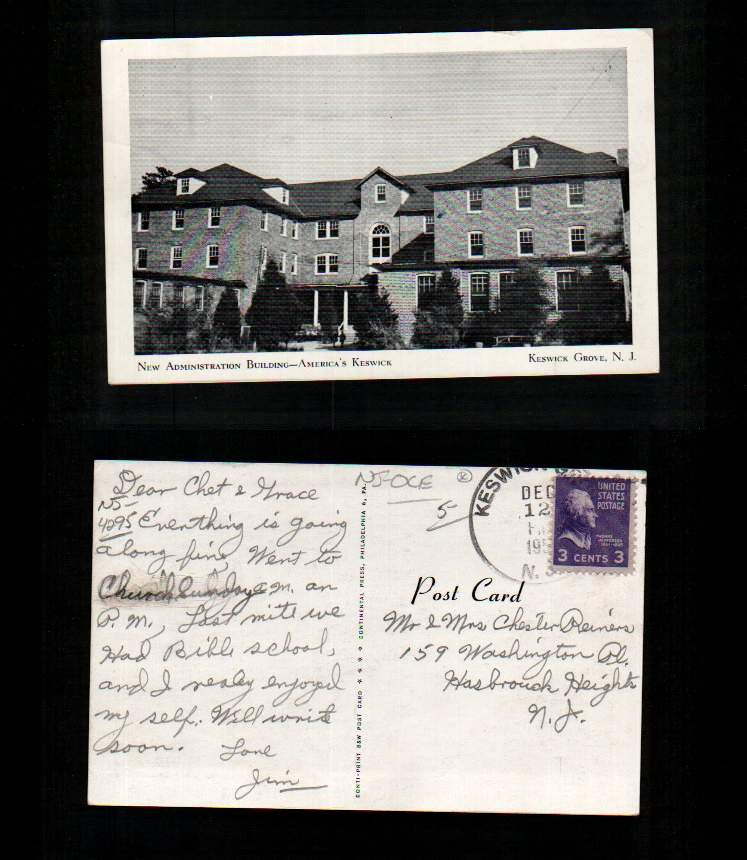 New Administration Building—America's Keswick
Keswick Grove, N. J.
NJ-OCE
5
K
KESWICK
DEC
12
195
N. J.
UNITED
STATES
POSTAGE
THOMAS
JEFFERSON
3 CENTS 3
Dear Chet & Grace
NJ-
4295
Everthing is going
along fine, Went to
Church Sunday a.m. an
P. M., Last nite we
Had Bible school,
and I realy enjoyed
my self. Will write
soon. Love
Jim
CONTI-PRINT B&W POST CARD * * * * CONTINENTAL PRESS, PHILADELPHIA 6, PA.
Post Card
Mr & Mrs Chester Reiners
159 Washington Pl.
Hasbrouck Heights
N. J.